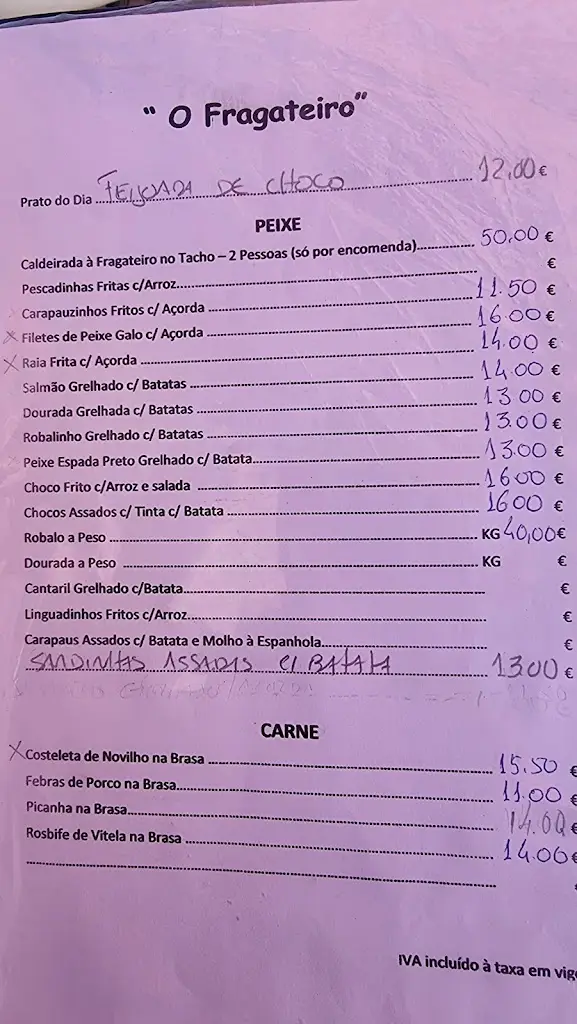 " O Fragateiro"
Prato do Dia FEIJOADA DE CHOCO 12,00 €
PEIXE
Caldeirada à Fragateiro no Tacho – 2 Pessoas (só por encomenda) 50,00 €
Pescadinhas Fritas c/Arroz €
Carapauzinhos Fritos c/ Açorda 11.50 €
X Filetes de Peixe Galo c/ Açorda 16.00 €
X Raia Frita c/ Açorda 14.00 €
Salmão Grelhado c/ Batatas 14.00 €
Dourada Grelhada c/ Batatas 13 00 €
Robalinho Grelhado c/ Batatas 13.00 €
Peixe Espada Preto Grelhado c/ Batata 13.00 €
Choco Frito c/Arroz e salada 1600 €
Chocos Assados c/ Tinta c/ Batata 1600 €
Robalo a Peso KG 40,00€
Dourada a Peso KG €
Cantaril Grelhado c/Batata €
Linguadinhos Fritos c/Arroz €
Carapaus Assados c/ Batata e Molho à Espanhola €
SARDINHAS ASSADAS C/ BATATA 1300 €
CARNE
X Costeleta de Novilho na Brasa 15.50 €
Febras de Porco na Brasa 11.00 €
Picanha na Brasa 14.00 €
Rosbife de Vitela na Brasa 14.00 €
IVA incluído à taxa em vig